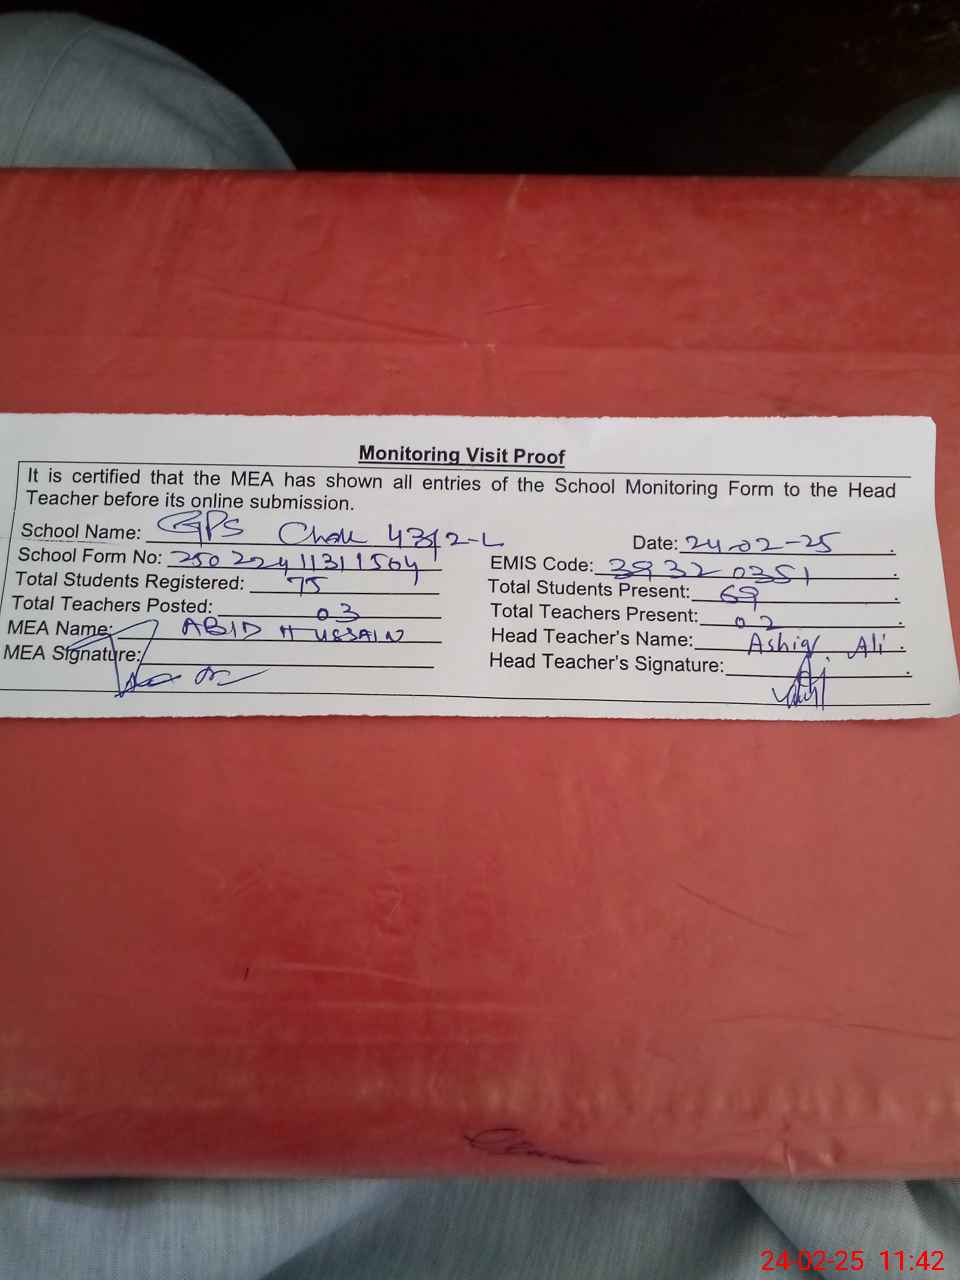 Monitoring Visit Proof
It is certified that the MEA has shown all entries of the School Monitoring Form to the Head
Teacher before its online submission.
School Name: GPS Chak 43/2-L
Date: 24-02-25
School Form No: 25022411311504
EMIS Code: 39320351
Total Students Registered: 75
Total Students Present: 69
Total Teachers Posted: 03
Total Teachers Present: 02
MEA Name: ABID HUSSAIN
Head Teacher's Name: Ashiq Ali
MEA Signature:
Head Teacher's Signature:
24-02-25 11:42